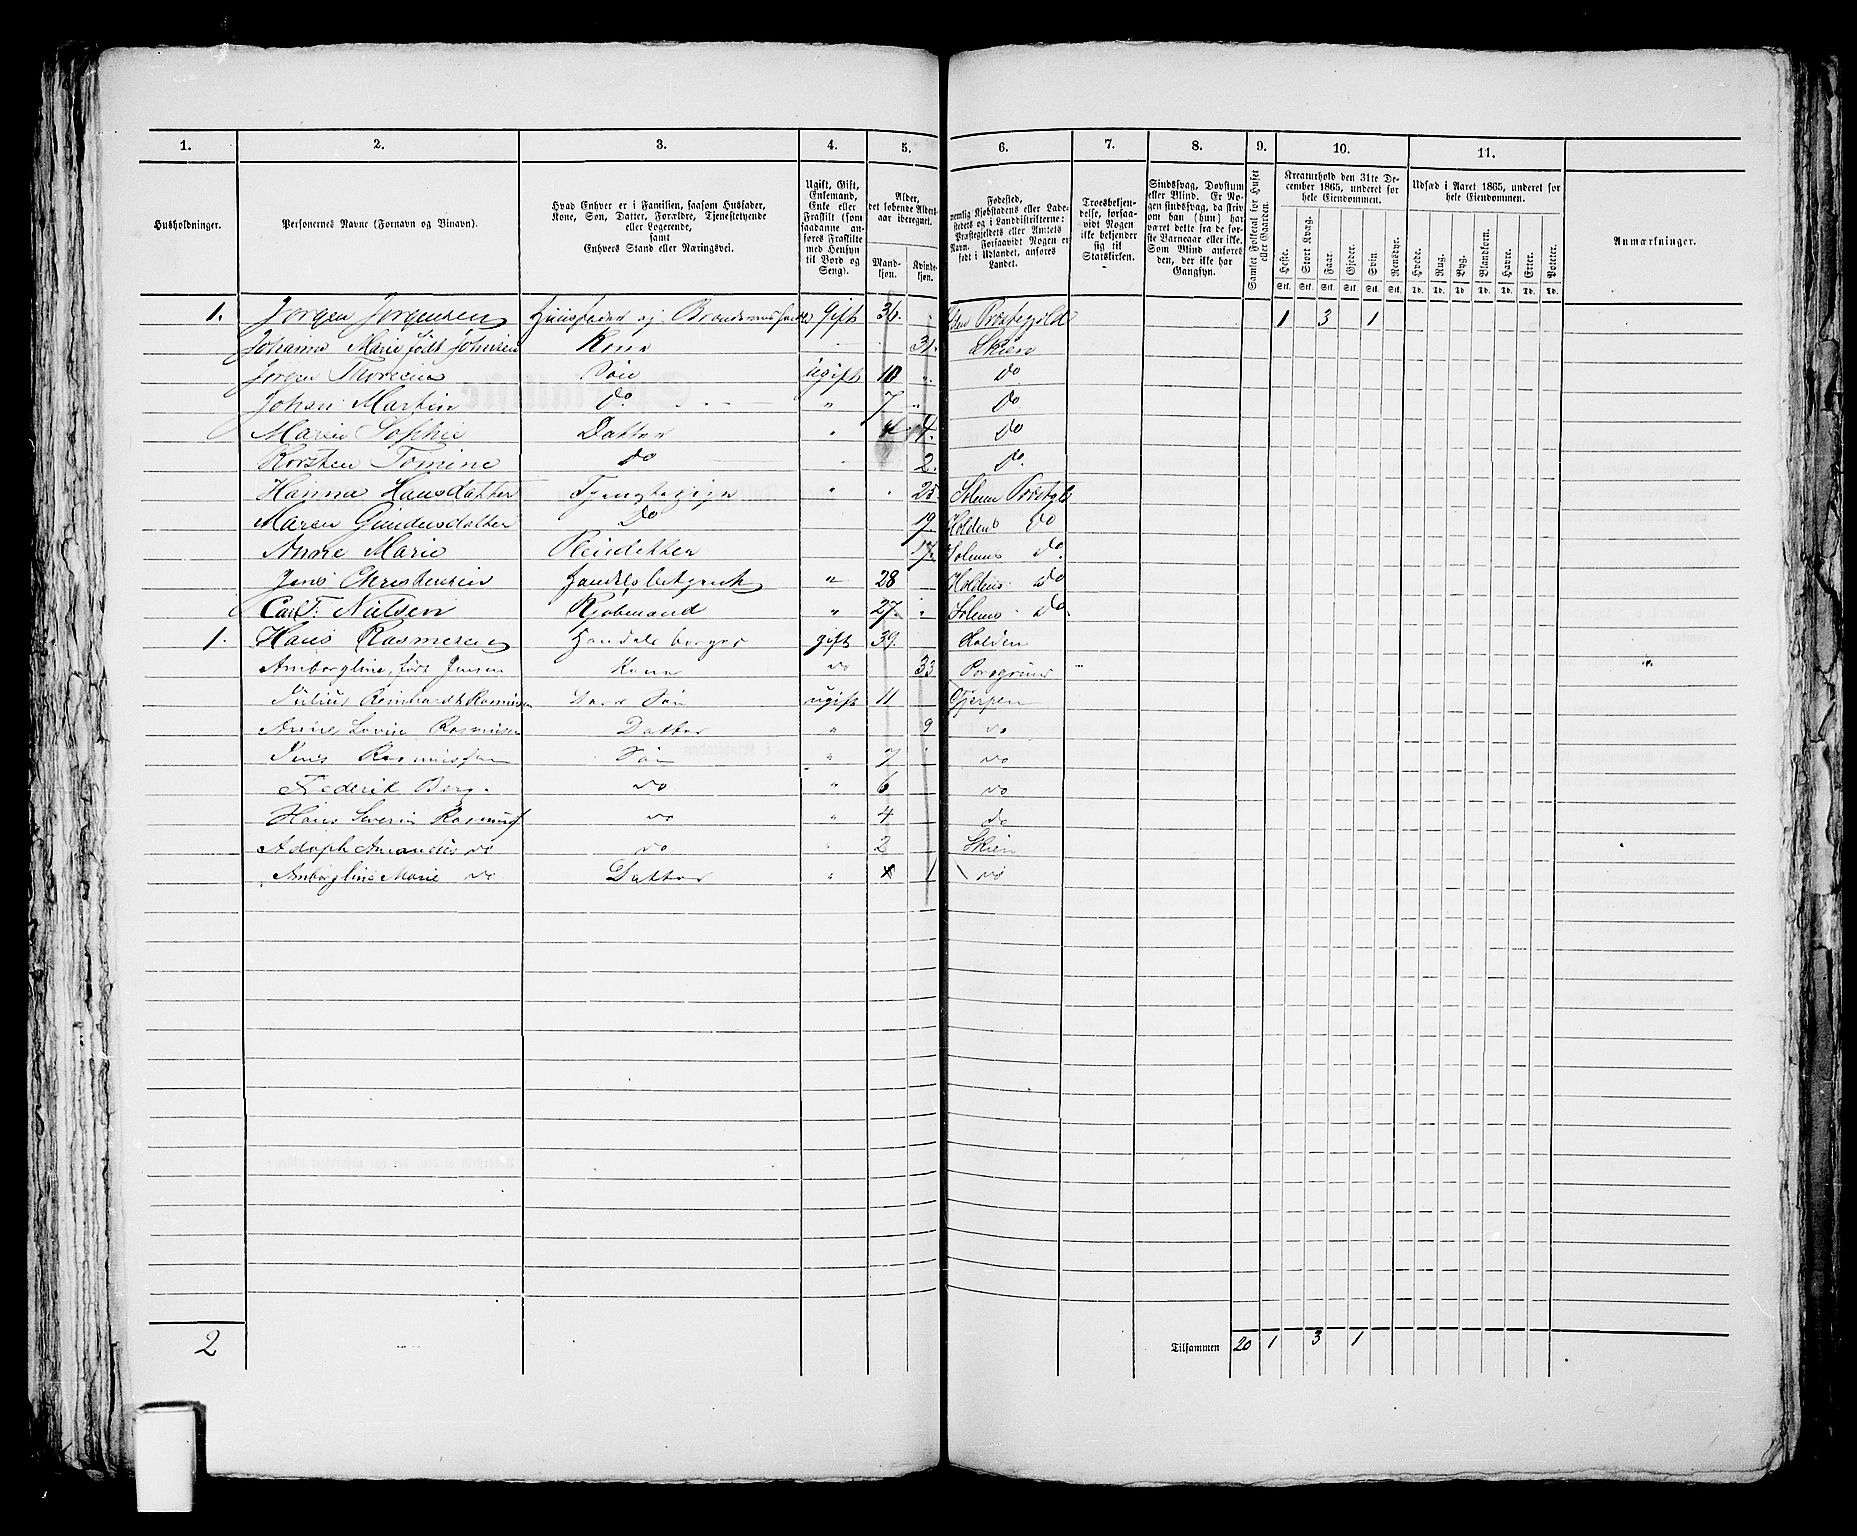 1. 2. 3. 4. 5. 6. 7. 8. 9. 10. 11.
Husholdninger.
Personernes Navne (Fornavn og Binavn).
Hvad Enhver er i Familien, saasom Husfader,
Kone, Søn, Datter, Forældre, Tjenestetyende
eller Logerende,
samt
Enhvers Stand eller Næringsvei.
Ugift, Gift,
Enkemand,
Enke eller
Fraskilt (som
saadanne an-
føres Fraskilte
med Hensyn
til Bord og
Seng).
Alder,
det løbende Aldersta-
aar iberegnet.
Mand-
kjøn.
Kvinde-
kjøn.
Fødested,
nemlig Kjøbstadens eller Lade-
stedets og i Landdistrikterne:
Præstegjeldets eller Amtets
Navn. Forsaavidt Nogen er
født i Udlandet, anføres
Landet.
Troesbekjen-
delse, forsaa-
vidt Nogen
ikke bekjender
sig til
Statskirken.
Sindssvag, Døvstum
eller Blind. Er No-
gen sindssvag, da skri-
ves om han (hun) har
været dette fra de før-
ste Barneaar eller ikke.
Som Blind anføres
den, der ikke har
Gangsyn.
Samlet Folketal for Huset
eller Gaarden.
Kreaturhold den 31te De-
cember 1865, underet for
hele Eiendommen.
Heste. Stort Kvæg. Faar. Gjeder. Svin. Rensdyr.
Stk. Stk. Stk. Stk. Stk. Stk.
Udsæd i Aaret 1865, underet for
hele Eiendommen.
Hvede. Rug. Byg. Blandkorn. Havre. Erter. Poteter.
Td. Td. Td. Td. Td. Td. Td.
Anmærkninger.
1. Jørgen Jørgensen Huusfader og Gift 36. Præstegjeld 1 3 1
Johanne Marie født Johnsen Kone 31. Skien
Jørgen Søn Ugift 10 Do
Johan Martin Do. " 7 Do
Maren Sophie Datter " 4. Do
Karsten Tomine Do 2. Do.
Hanna Hansdatter Tjenestepige " 25 Solum
Maren Gundersdatter Do 19 Holdens Do
Anne Marie Pleiedatter 17. Solums Do.
Jens Christensen Handelsbetjent " 28 Holdens Do
Carl F. Nielsen Kjøbmand " 27. Solums Do.
1. Hans Rasmusen Handelsborger gift 39. Holden
Amborgline, født Jensen Kone do 33 Porsgrund
Julius Reinhardt Rasmusen Søn ugift 11 Gjerpen
Anne Lovise Rasmusen Datter " 9 do
Jens Rasmusen Søn " 7 do
Frederik Berg do " 6 do
Hans Severin Rasmus do " 4 do
Adolph Amandus do do " 2 Skien
Amborgline Marie do Datter " 1 do
2
Tilsammen 20 1 3 1